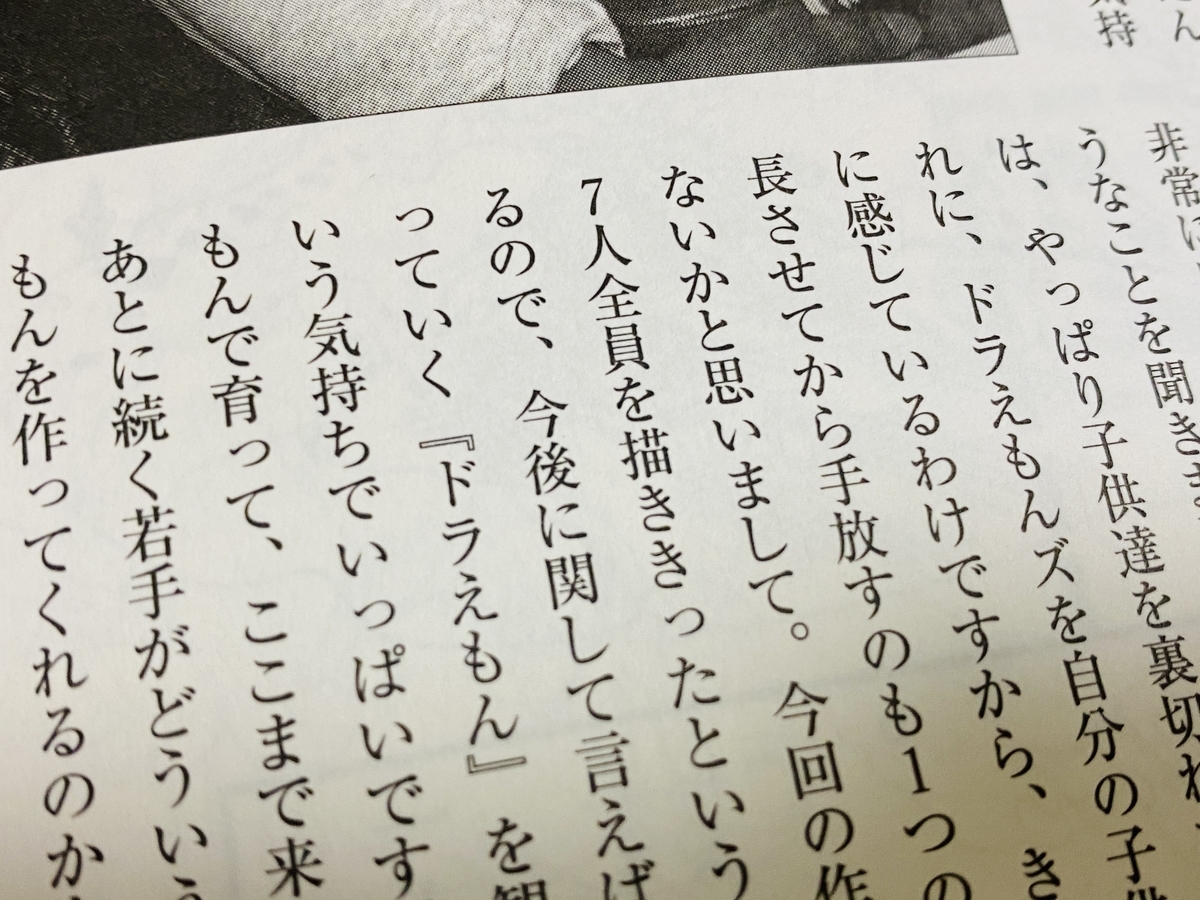 さん
気持
非常に
うなことを聞きま
は、やっぱり子供達を裏切れ
れに、ドラえもんズを自分の子供
に感じているわけですから、き
長させてから手放すのも1つの
ないかと思いまして。今回の作
7人全員を描ききったという
るので、今後に関して言えば
っていく『ドラえもん』を観
いう気持ちでいっぱいです
もんで育って、ここまで来
あとに続く若手がどういう
もんを作ってくれるのか